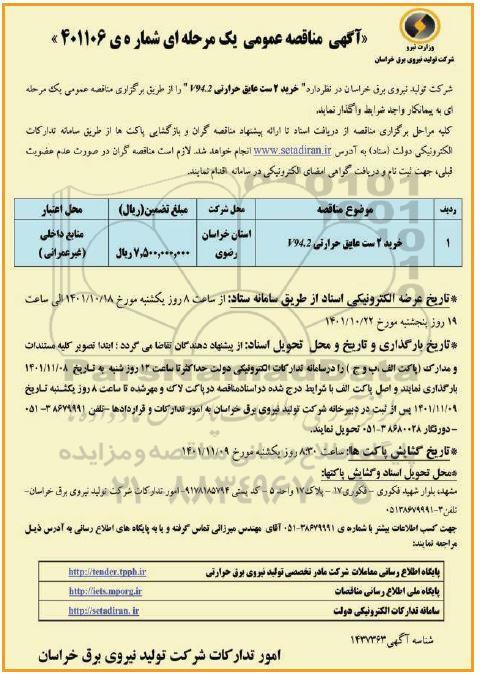 وزارت نیرو
شرکت تولید نیروی برق خراسان
«آگهی مناقصه عمومی یک مرحله ای شماره ی ۴۰۱۱۰۶ »
شرکت تولید نیروی برق خراسان در نظردارد" خرید ۲ ست عایق حرارتی V94.2 " را از طریق برگزاری مناقصه عمومی یک مرحله
ای به پیمانکار واجد شرایط واگذار نماید.
کلیه مراحل برگزاری مناقصه از دریافت اسناد تا ارائه پیشنهاد مناقصه گران و بازگشایی پاکت ها از طریق سامانه تدارکات
الکترونیکی دولت (ستاد) به آدرس www.setadiran.ir انجام خواهد شد. لازم است مناقصه گران در صورت عدم عضویت
قبلی، جهت ثبت نام و دریافت گواهی امضای الکترونیکی در سامانه اقدام نمایند.
ردیف موضوع مناقصه محل شرکت مبلغ تضمین(ریال) محل اعتبار
۱ خرید ۲ ست عایق حرارتی V94.2 استان خراسان رضوی ۷,۵۰۰,۰۰۰,۰۰۰ ریال منابع داخلی (غیرعمرانی)
*تاریخ عرضه الکترونیکی اسناد از طریق سامانه ستاد: از ساعت ۸ روز یکشنبه مورخ ۱۴۰۱/۱۰/۱۸ الی ساعت
۱۹ روز پنجشنبه مورخ ۱۴۰۱/۱۰/۲۲
*تاریخ بارگذاری و تاریخ و محل تحویل اسناد: از پیشنهاد دهندگان تقاضا می گردد ؛ ابتدا تصویر کلیه مستندات
و مدارک (پاکت الف ،ب و ج ) را درسامانه تدارکات الکترونیکی دولت حداکثر تا ساعت ۱۳ روز شنبه به تاریخ ۱۴۰۱/۱۱/۰۸
بارگذاری نمایند و اصل پاکت الف با شرایط درج شده دراسنادمناقصه درپاکت لاک و مهرشده تا ساعت ۸ روز یکشنبه تاریخ
۱۴۰۱/۱۱/۰۹ پس از ثبت در دبیرخانه شرکت تولید نیروی برق خراسان به امور تدارکات و قراردادها -تلفن ۳۸۶۷۹۹۹۱-۰۵۱
-دورنگار ۳۸۶۸۰۰۲۸-۰۵۱ تحویل نمایند.
*تاریخ گشایش پاکت ها: ساعت ۸:۳۰ روز یکشنبه مورخ ۱۴۰۱/۱۱/۰۹
*محل تحویل اسناد وگشایش پاکتها:
مشهد، بلوار شهید فکوری - فکوری۱۷ - پلاک۱۷ واحد ۵ - کد پستی ۹۱۷۸۱۸۵۷۹۴- امور تدارکات شرکت تولید نیروی برق خراسان-
تلفن۳-۰۵۱۳۸۶۷۹۹۹۱
جهت کسب اطلاعات بیشتر با شماره ی ۳۸۶۷۹۹۹۱-۰۵۱ آقای مهندس میرزائی تماس گرفته و یا به پایگاه های اطلاع رسانی به آدرس ذیل
مراجعه نمایند:
پایگاه اطلاع رسانی معاملات شرکت مادر تخصصی تولید نیروی برق حرارتی http://tender.tpph.ir
پایگاه ملی اطلاع رسانی مناقصات http://iets.mporg.ir
سامانه تدارکات الکترونیکی دولت http://setadiran.ir
شناسه آگهی۱۴۳۷۳۶۳
امور تدارکات شرکت تولید نیروی برق خراسان